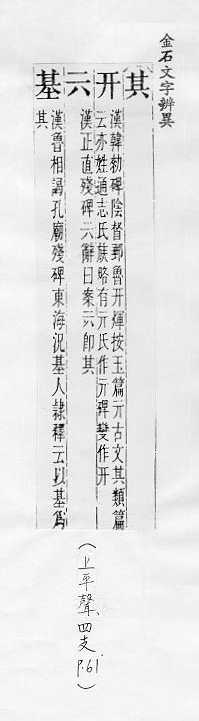 金石文字辨異
其
开
漢韓勑碑陰督郵魯开煇按玉篇亓古文其類篇
云亦姓通志氏族略有亓氏作亓碑變作开
亓
漢正直殘碑亓辭曰案亓即其
基
漢魯相謁孔廟殘碑東海況基人隸釋云以基為
其
（上平聲、四支 p.61）